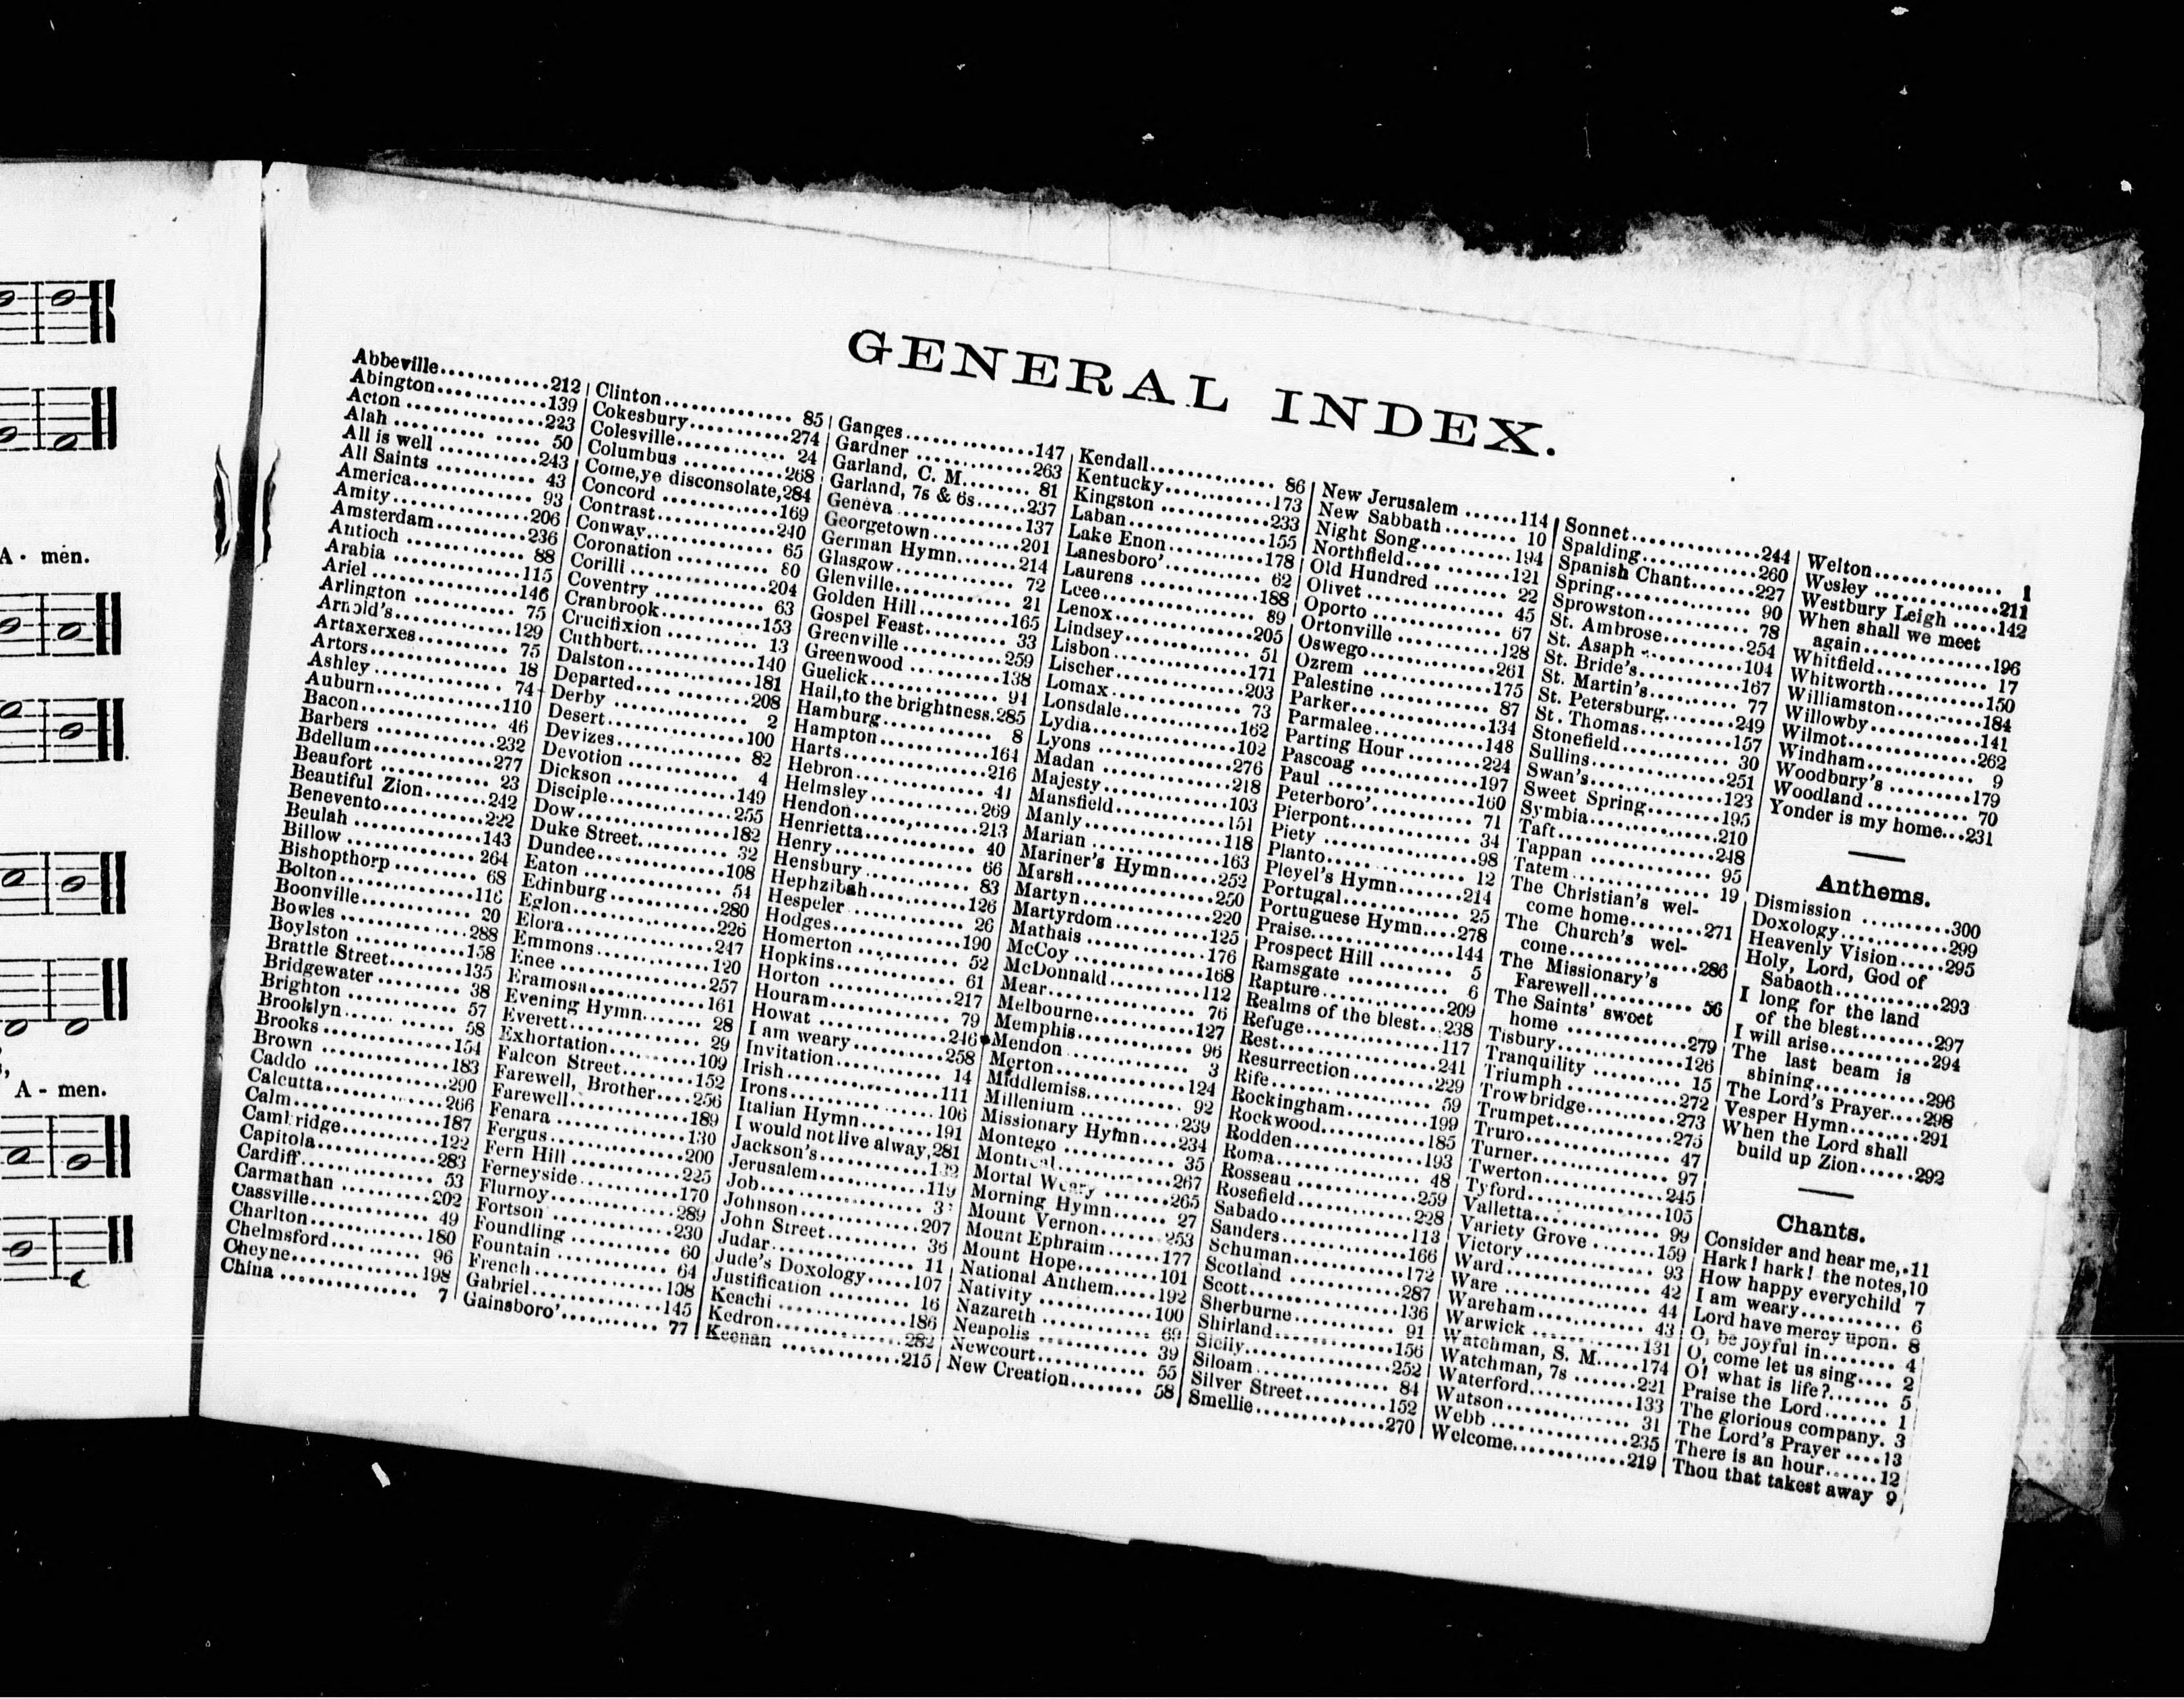 A - men.
A - men.
GENERAL INDEX.
Abbeville............212
Abington............139
Acton............223
Alah............50
All is well............243
All Saints............43
America............93
Amity............206
Amsterdam............236
Antioch............88
Arabia............115
Ariel............146
Arlington............75
Arnold's............129
Artaxerxes............75
Artors............18
Ashley............74
Auburn............110
Bacon............46
Barbers............232
Bdellum............277
Beaufort............23
Beautiful Zion.......242
Benevento............222
Beulah............143
Billow............264
Bishopthorp............68
Bolton............116
Boonville............20
Bowles............288
Boylston............158
Brattle Street........135
Bridgewater............38
Brighton............57
Brooklyn............58
Brooks............154
Brown............183
Caddo............290
Calcutta............266
Calm............187
Cambridge............122
Capitola............283
Cardiff............53
Carmathan............202
Cassville............49
Charlton............180
Chelmsford............96
Cheyne............198
China............7
Clinton............85
Cokesbury............274
Colesville............24
Columbus............268
Come,ye disconsolate,284
Concord............169
Contrast............240
Conway............65
Coronation............80
Corilli............204
Coventry............63
Cranbrook............153
Crucifixion............13
Cuthbert............140
Dalston............181
Departed............208
Derby............2
Desert............100
Devizes............82
Devotion............4
Dickson............149
Disciple............255
Dow............182
Duke Street............32
Dundee............108
Eaton............54
Edinburg............280
Eglon............226
Elora............247
Emmons............120
Enee............257
Eramosa............161
Evening Hymn........28
Everett............29
Exhortation............109
Falcon Street........152
Farewell, Brother....256
Farewell............189
Fenara............130
Fergus............200
Fern Hill............225
Ferneyside............170
Flurnoy............289
Fortson............230
Foundling............60
Fountain............64
French............158
Gabriel............145
Gainsboro'............77
Ganges............147
Gardner............263
Garland, C. M........81
Garland, 7s & 6s......237
Geneva............137
Georgetown............201
German Hymn.......214
Glasgow............72
Glenville............21
Golden Hill............165
Gospel Feast........33
Greenville............259
Greenwood............138
Guelick............94
Hail,to the brightness.285
Hamburg............8
Hampton............164
Harts............216
Hebron............41
Helmsley............269
Hendon............213
Henrietta............40
Henry............66
Hensbury............83
Hephzibah............126
Hespeler............26
Hodges............190
Homerton............52
Hopkins............61
Horton............217
Houram............79
Howat............246
I am weary............258
Invitation............14
Irish............111
Irons............106
Italian Hymn........191
I would not live alway,281
Jackson's............132
Jerusalem............119
Job............
Johnson............207
John Street............36
Judar............11
Jude's Doxology......107
Justification............16
Keachi............186
Kedron............282
Keenan............215
Kendall............86
Kentucky............173
Kingston............233
Laban............155
Lake Enon............178
Lanesboro'............62
Laurens............188
Lcee............89
Lenox............205
Lindsey............51
Lisbon............171
Lischer............203
Lomax............73
Lonsdale............162
Lydia............102
Lyons............276
Madan............218
Majesty............103
Mansfield............151
Manly............118
Marian............163
Mariner's Hymn.....252
Marsh............250
Martyn............220
Martyrdom............125
Mathais............176
McCoy............168
McDonnald............112
Mear............76
Melbourne............127
Memphis............96
Mendon............3
Merton............124
Middlemiss............92
Millenium............239
Missionary Hymn....234
Montego............35
Montreal............267
Mortal Weary.......265
Morning Hymn......27
Mount Vernon.......253
Mount Ephraim......177
Mount Hope............101
National Anthem.....192
Nativity............100
Nazareth............69
Neapolis............39
Newcourt............55
New Creation........58
New Jerusalem......114
New Sabbath........10
Night Song............194
Northfield............121
Old Hundred........22
Olivet............45
Oporto............67
Ortonville............128
Oswego............261
Ozrem............175
Palestine............87
Parker............134
Parmalee............148
Parting Hour........224
Pascoag............197
Paul............160
Peterboro'............71
Pierpont............34
Piety............98
Planto............12
Pleyel's Hymn......214
Portugal............25
Portuguese Hymn....278
Praise............144
Prospect Hill........5
Ramsgate............6
Rapture............209
Realms of the blest...238
Refuge............117
Rest............241
Resurrection............229
Rife............59
Rockingham............199
Rockwood............185
Rodden............193
Roma............48
Rosseau............259
Rosefield............228
Sabado............113
Sanders............166
Schuman............172
Scotland............287
Scott............136
Sherburne............91
Shirland............156
Sicily............252
Siloam............84
Silver Street........152
Smellie............270
Sonnet............244
Spalding............260
Spanish Chant.......227
Spring............90
Sprowston............78
St. Ambrose............254
St. Asaph............104
St. Bride's............167
St. Martin's............77
St. Petersburg........249
St. Thomas............157
Stonefield............30
Sullins............251
Swan's............123
Sweet Spring........195
Symbia............210
Taft............248
Tappan............95
Tatem............19
The Christian's wel-
come home........271
The Church's wel-
come............286
The Missionary's
Farewell............56
The Saints' sweet
home............279
Tisbury............126
Tranquility............15
Triumph............272
Trowbridge............273
Trumpet............275
Truro............47
Turner............97
Twerton............245
Tyford............105
Valletta............99
Variety Grove.......159
Victory............93
Ward............42
Ware............44
Wareham............43
Warwick............131
Watchman, S. M.....174
Watchman, 7s.......221
Waterford............133
Watson............31
Webb............235
Welcome............219
Welton............1
Wesley............211
Westbury Leigh.....142
When shall we meet
again............196
Whitfield............17
Whitworth............150
Williamston............184
Willowby............141
Wilmot............262
Windham............9
Woodbury's............179
Woodland............70
Yonder is my home...231
Anthems.
Dismission............300
Doxology............299
Heavenly Vision.....295
Holy, Lord, God of
Sabaoth............293
I long for the land
of the blest........297
I will arise............294
The last beam is
shining............296
The Lord's Prayer....298
Vesper Hymn........291
When the Lord shall
build up Zion......292
Chants.
Consider and hear me,.11
Hark! hark! the notes,10
How happy everychild 7
I am weary............6
Lord have mercy upon. 8
O, be joyful in........4
O, come let us sing.... 2
O! what is life?.......5
Praise the Lord........1
The glorious company. 3
The Lord's Prayer ....13
There is an hour......12
Thou that takest away 9